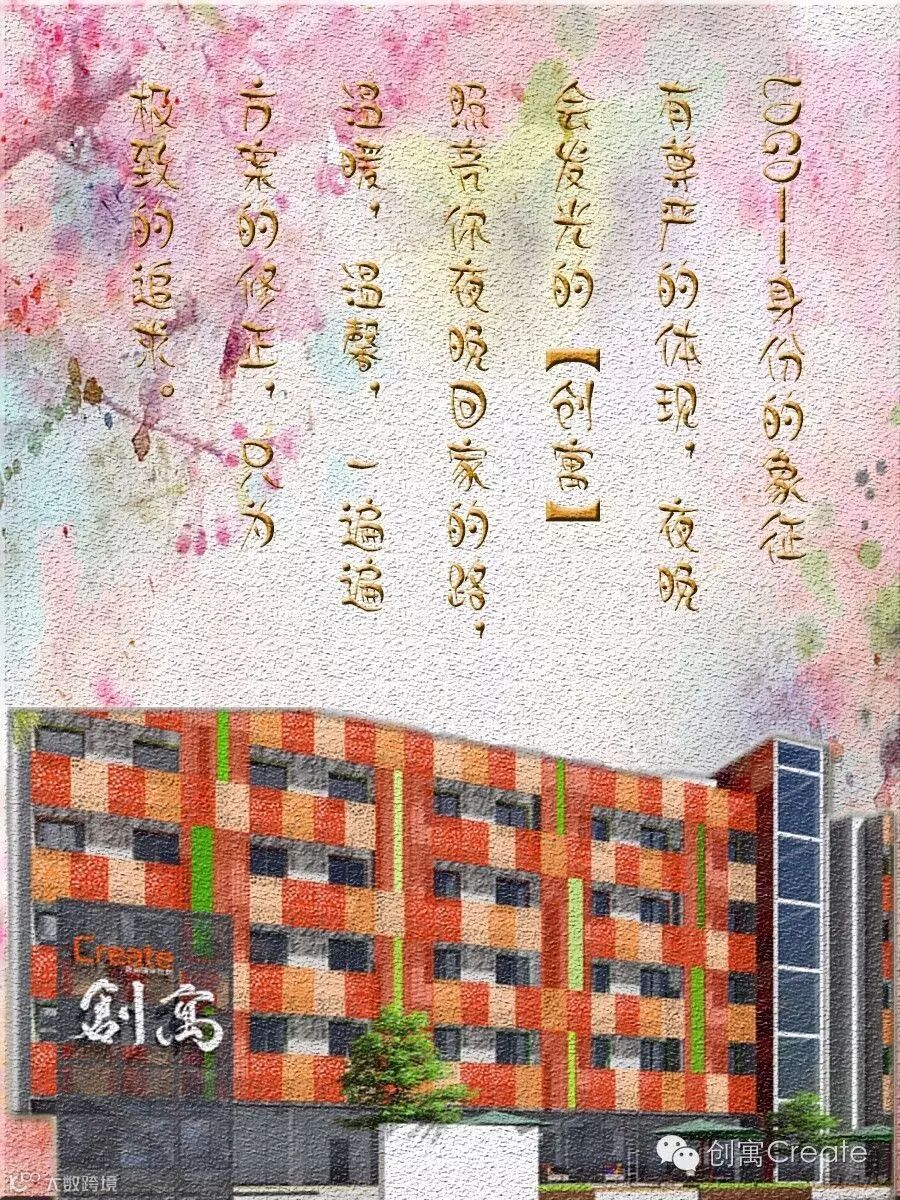 LOGO——身份的象征
有尊严的体现，夜晚
会发光的【创寓】
照亮你夜晚回家的路，
温暖，温馨，一遍遍
方案的修正，只为
极致的追求。
Create
創寓
创寓Create
大数跨境